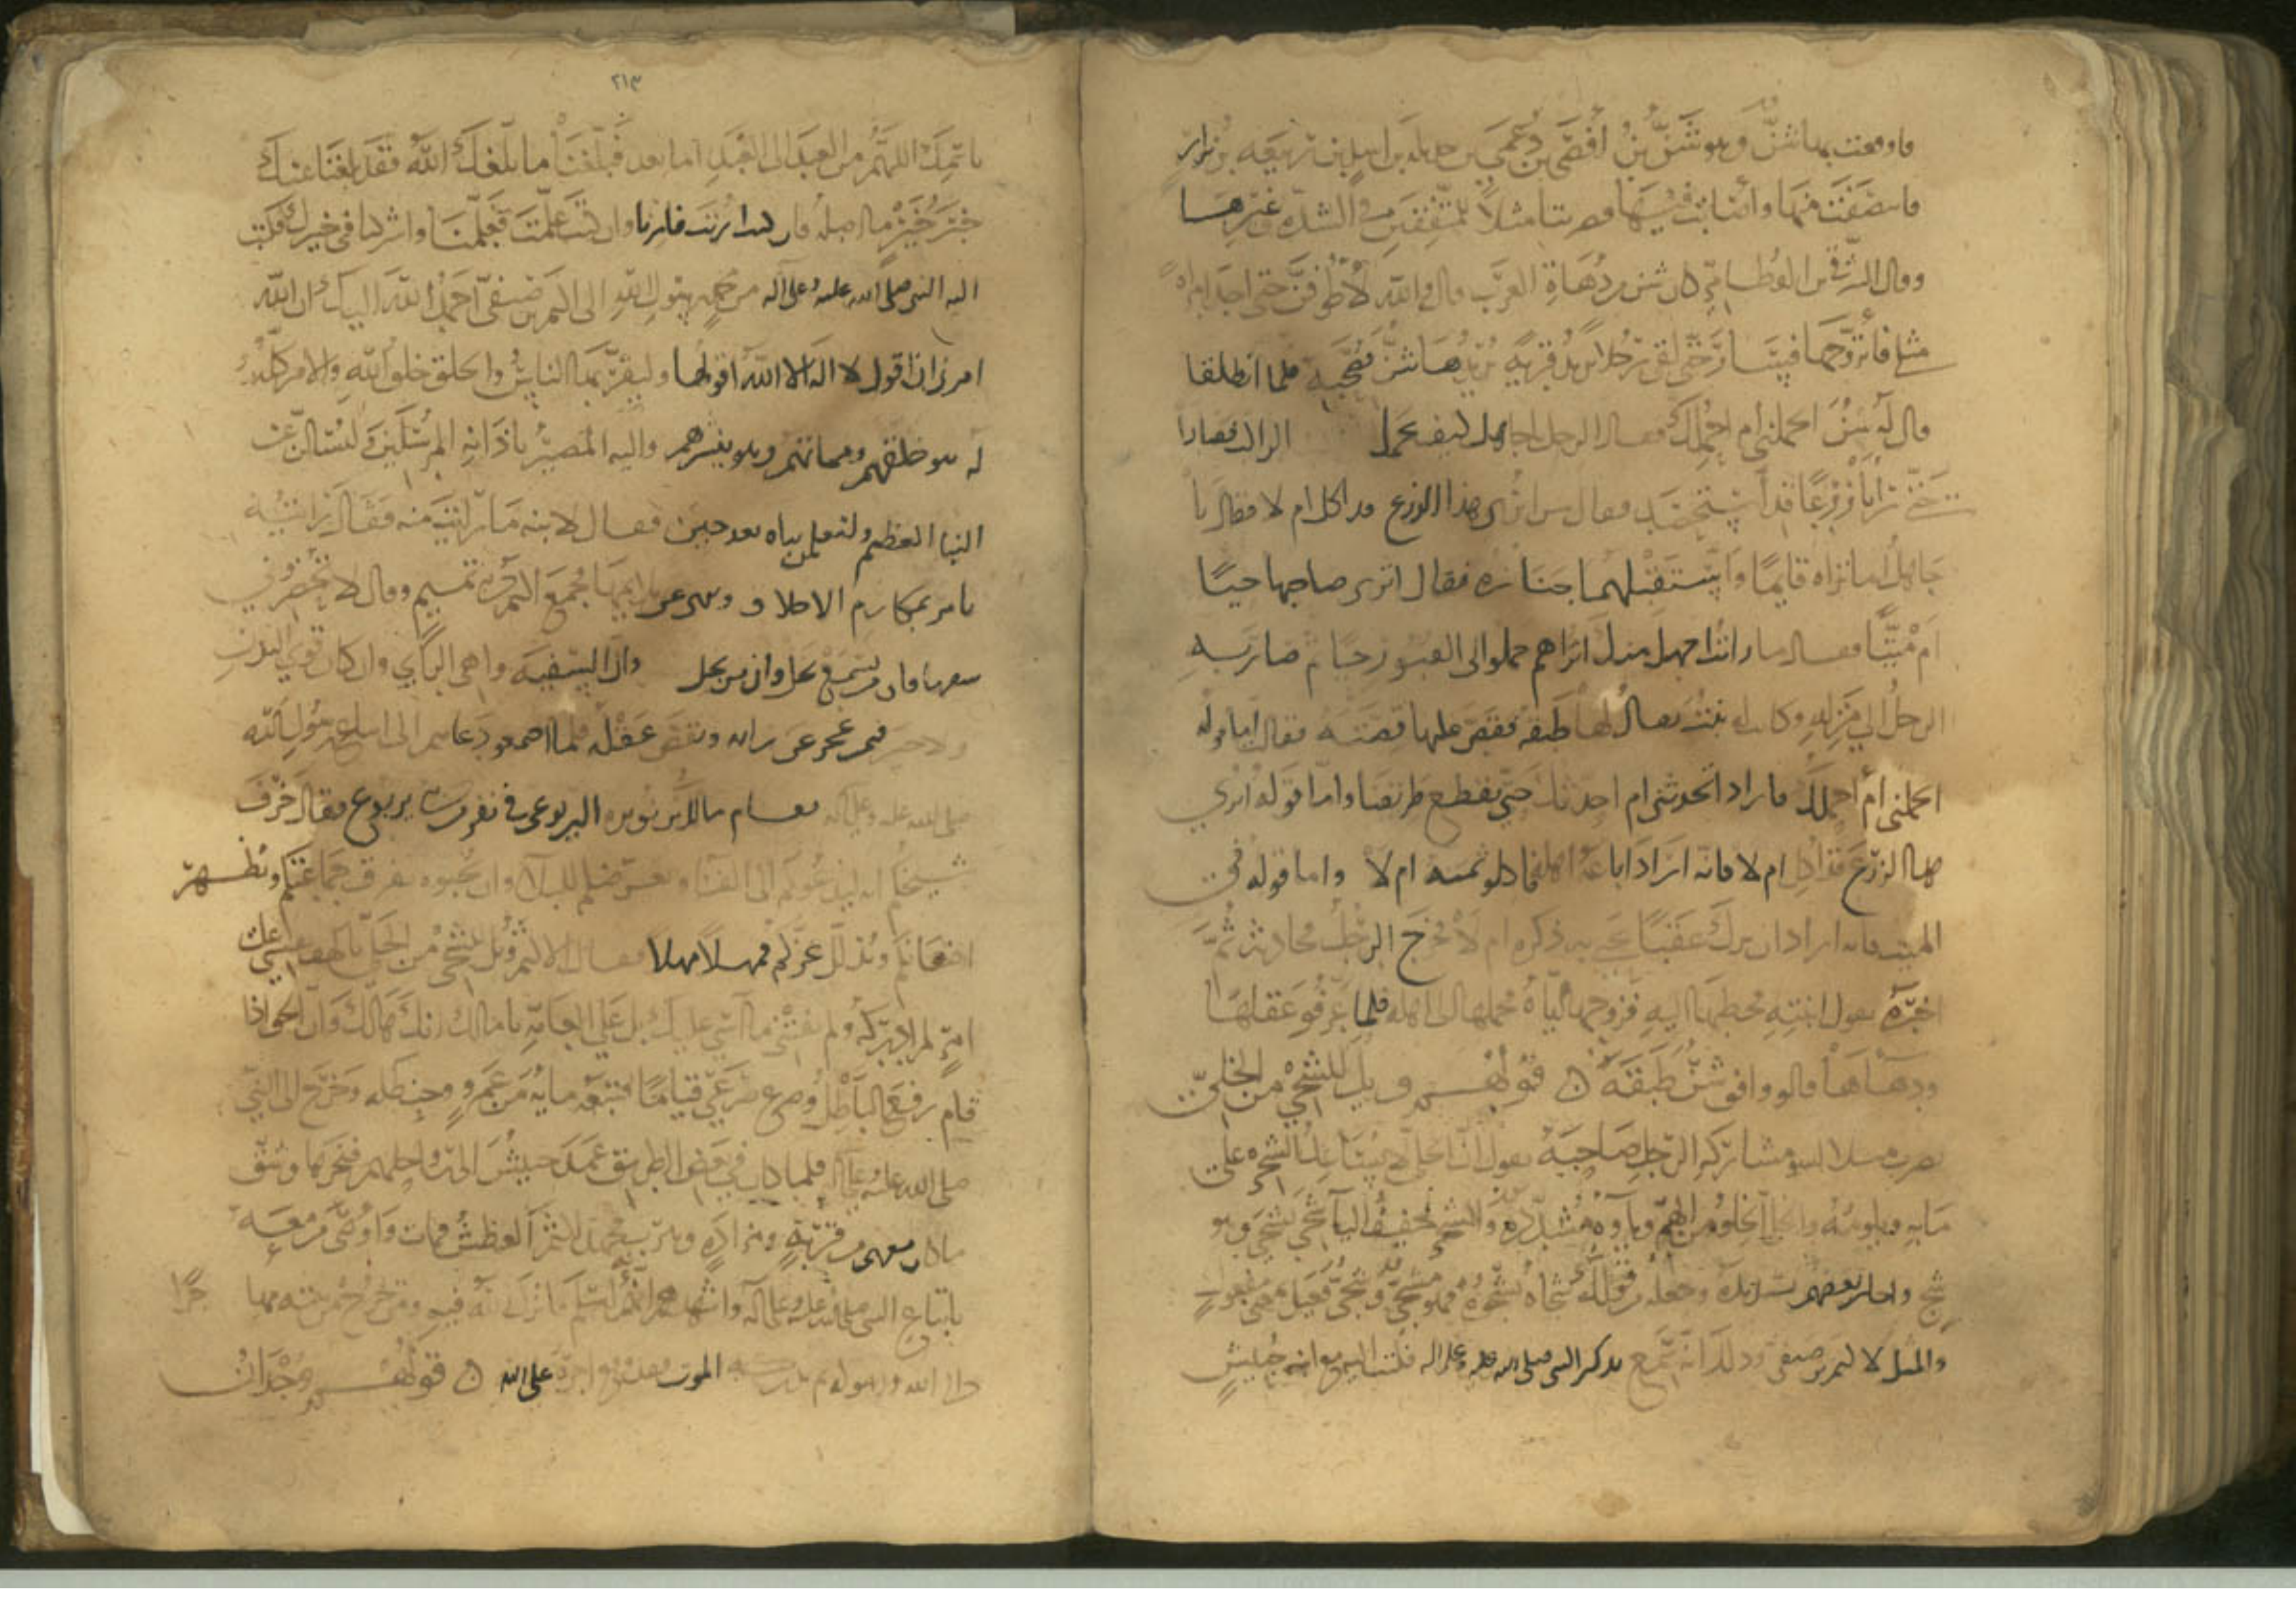 فاوقعت بها شنّ وهو شَنُّ بنُ أَفْصَى بن دُعْمِيّ بن جديلة بن اسد بن ربيعة بن نزار
فانتصفت منها واصابت فيها فضربتا مثلاً للمتفقين في الشدّة وغيرها
وقال الشرقي بن القطامي كان شن من دُهاة العرب قال والله لأطوفنّ حتى اجد امراة
مثلي فأتزوجها فبينا حتى لقي رجلا يريد قرية يريدها شنّ فصحبه فلما انطلقا
قال له شن احملني أم احملك فقال الرجل اجاهل كيف يحمل الراكب فصارا
حتى رأيا زرعًا قد استحصد فقال شن اترى هذا الزرع قد اكل ام لا فقال يا
جاهل اما تراه قايمًا واستقبلهما جنازة فقال اترى صاحبها حيًا
ام ميّتًا فقال ما رايت اجهل منك اتراهم حملوا الى القبور حيا ثم صار به
الرجل الى منزله وكانت له بنت يقال لها طبقة فقص عليها قصته فقال اما قوله
احملني أم أحملك فاراد اتحدثني ام احدثك حتى نقطع طريقنا واما قوله أترى
هذا الزرع قد اكل ام لا فانه اراد اباعه اهله فاكلوا ثمنه ام لا واما قوله في
الميت فانه اراد ان ترك عقبًا يحيى به ذكره ام لا فخرج الرجل فحادثه ثم
اخبره بقول ابنته فخطبها اليه فزوجها اياه فحملها الى اهله فلما عرفوا عقلها
ودهاها قالوا وافق شنّ طبقة ن قولهم ويل للشجي من الخليّ
يضرب مثلا لسوء مشاركة الرجل صاحبه يقول ان الخلي لا يساعد الشجي على
ما به ويلومه والخلي الخلو من الهمّ وياوه مشددة والشجي خفيف اليا شجي يشجى فهو
شجٍ واجاز بعضهم تشديده وجعله من قولك شجاه يشجوه فهو مشجوّ وشجيّ فعيل بمعنى مفعول
والمثل لاكثم بن صيفي وذلك انه سمع بذكر النبي صلى الله عليه وعلى اله فكتب اليه مع ابنه حبيش
٢١٣
باسمك اللهم من العبد الى العبد اما بعد فبلّغنا ما بلّغك الله فقد بلغنا عنك
خبر خير ما اصله فان كنت اريت فارنا وان كنت علّمت فعلّمنا واشركنا في خيرك فكتب
اليه النبي صلى الله عليه وعلى اله من محمد رسول الله الى اكثم بن صيفي احمد الله اليك ان الله
امرني ان اقول لا اله الا الله اقولها وليقرّ بها الناس والخلق خلق الله والامر كله
له هو خلقهم واماتهم وهو ينشرهم واليه المصير باذانه المرسلين ولتسالن عن
النبا العظيم ولتعلمن نباه بعد حين فقال لابنه ما رايت منه فقال رايته
يامر بمكارم الاخلاق وينهى عن ملايمها فجمع اكثم تميم وقال لا تحضروني
سفيها فان من يسمع يخل وان من يخل وان السفيه واهي الراي وان كان قوي البدن
ولا خير فيمن عجز عن رايه ونقص عقله فلما اجتمعوا دعاهم الى اتباع رسول الله
صلى الله عليه وعلى اله فقام مالك بن نويرة اليربوعي في نفر من بني يربوع فقال خرف
شيخكم انه ليدعوكم الى الفنا ويعرضكم للبلا وان تجيبوه تفرق جماعتكم وتظهر
اضغانكم ويذلل عزكم فمهلا مهلا فقال اكثم ويل للشجي من الخلي يا لهف نفسي على
امرٍ لم ادركه ولم يفتني ما آسى عليك بل على العامة يا مالك انك هالك وان الحق اذا
قام رفع الباطل وصرع صرعى قياما فتبعه مايه من عمرو وحنظله وخرج الى النبي
صلى الله عليه وعلى اله فلما كان في بعض الطريق عمد حبيش الى رواحلهم فنحرها وشق
ما كان معهم من قربةٍ ومزادةٍ وهرب فجهد اكثم العطش فمات واوصى من معه
باتباع النبي صلى الله عليه وعلى اله واشهدهم انه اسلم فانزل الله فيه ومن يخرج من بيته مهاجرًا
الى الله ورسوله ثم يدركه الموت فقد وقع اجره على الله ن قولهم وجدان